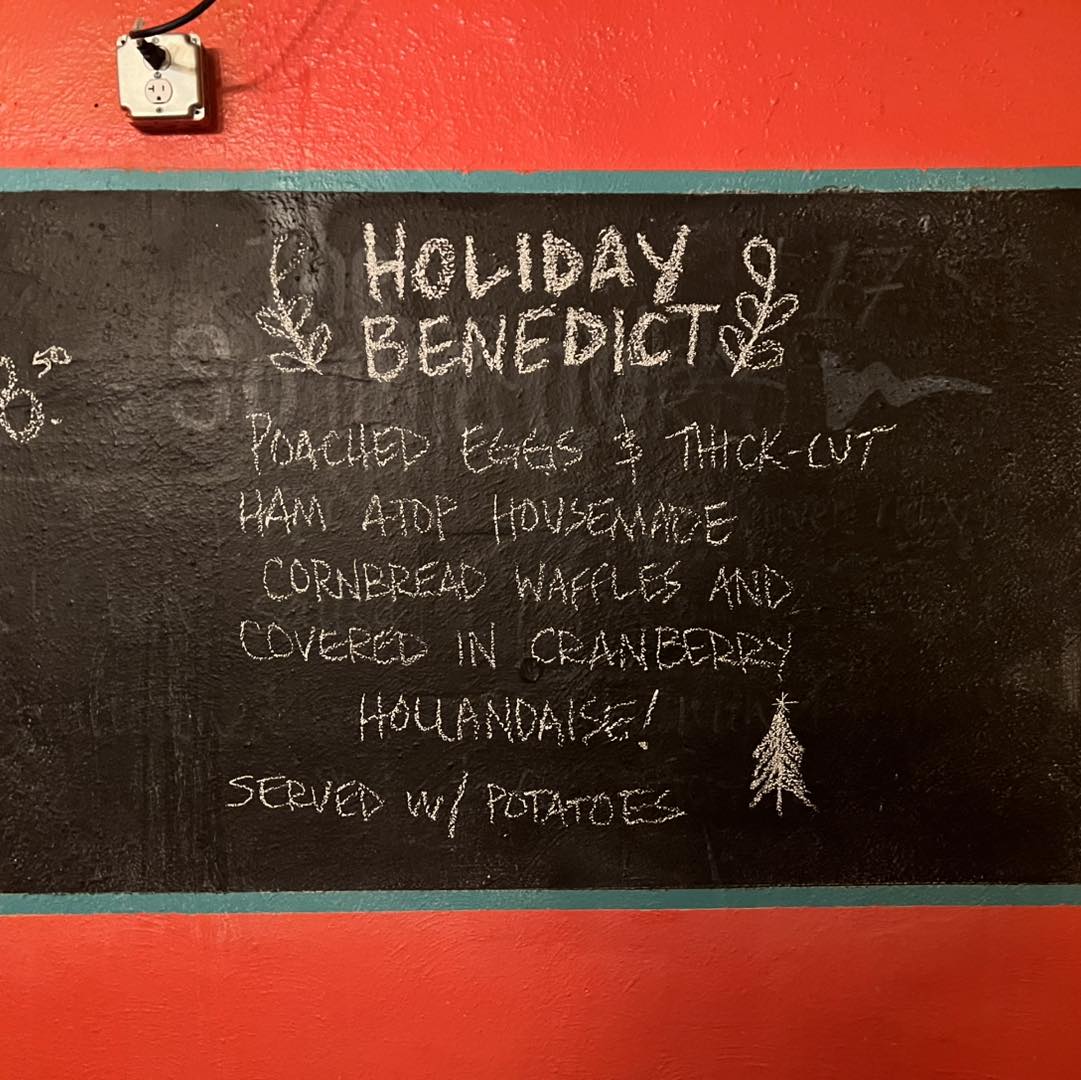 HOLIDAY
BENEDICT
8.50
POACHED EGGS & THICK-CUT
HAM ATOP HOUSEMADE
CORNBREAD WAFFLES AND
COVERED IN CRANBERRY
HOLLANDAISE!
SERVED W/ POTATOES